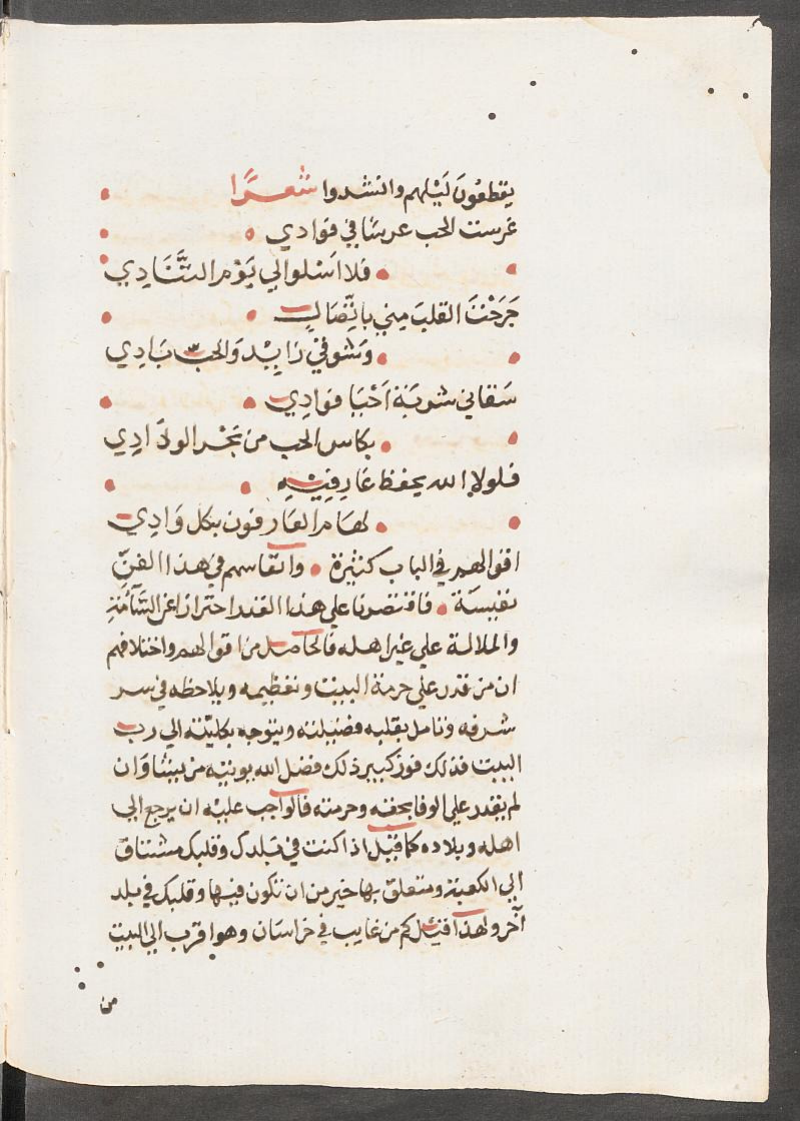 يقطعُونَ لَيْلهم وانشدوا شعرًا
غرست الحب عرسًا في فوادي
فلا اسَلوا الي يَوْم التَّنَادِي
جَرَحْتَ القلبَ مِني باتِّصَالٍ
وشوقي زَايِدْ وَالحب بَادِي
سَقاني شربَة اَحْيَا فوادِي
بكاس الحب من بَحْر الودَادِي
فلولا الله يحفظ عَارفِيْهِ
لهَام العَارفون بكل وَادِي
اقوالهم في الباب كثيرة وانفاسهم في هذا الفنِّ
نفيسَة فاقتصرنا علي هذا القدر احترازا عن السَّآمَةِ
والملالة علي غير اهله فالحاصل من اقوالهم واختلافهم
ان من قدر علي حرمة البيت وتعظيمه ويلاحظه في سر
شرفه وتامل بقلبه فضيلته ويتوجه بكليّته الي رب
البيت فذلك فوز كبير ذلك فضل الله يوتيه من يشا وَان
لم يقدر علي الوفا بحقه وحرمته فالواجب عليْه ان يرجع الي
اهله وبلاده كما قيْل اذا كنت في بَلدك وقلبك مشتاق
الي الكعبة ومتعلق بها خير من ان تكون فيها وقلبك في بلد
آخر ولهذا قيْل كم من غايب في خراسَان وهو اقرب الي البيت
من